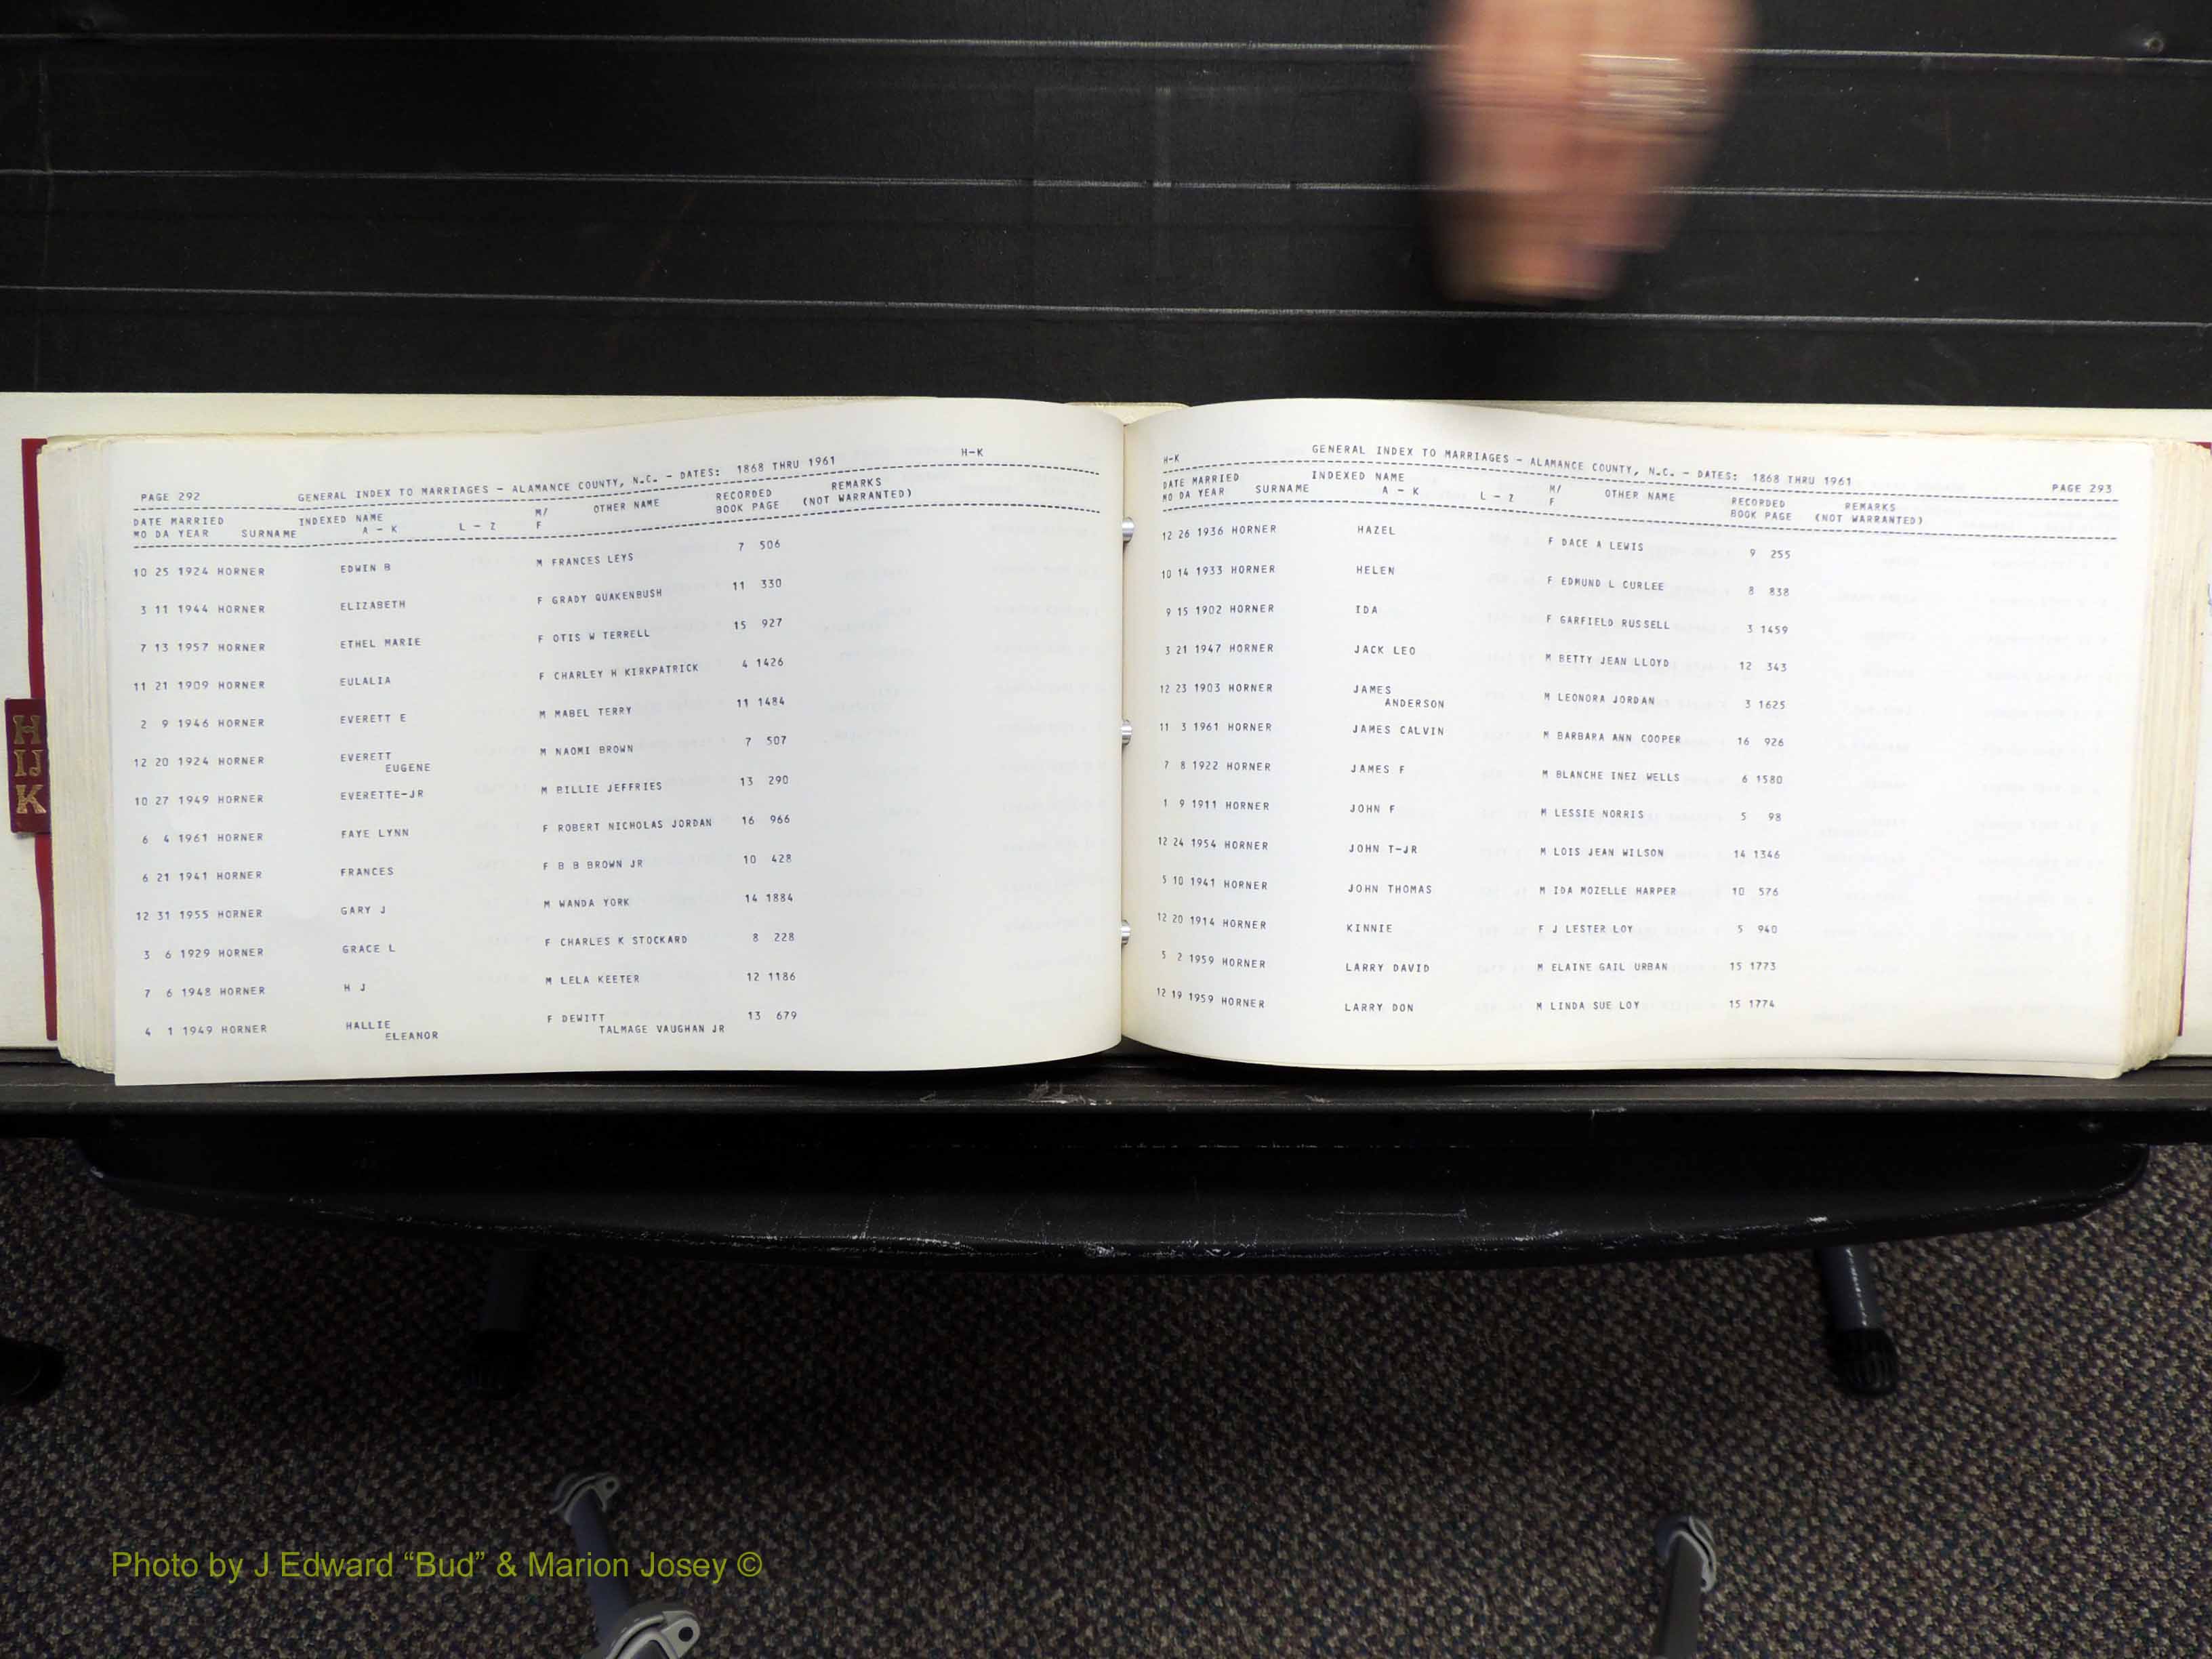 PAGE 292 GENERAL INDEX TO MARRIAGES - ALAMANCE COUNTY, N.C. - DATES: 1868 THRU 1961 H-K
DATE MARRIED INDEXED NAME M/ OTHER NAME RECORDED REMARKS
MO DA YEAR SURNAME A - K L - Z F BOOK PAGE (NOT WARRANTED)
10 25 1924 HORNER EDWIN B M FRANCES LEYS 7 506
3 11 1944 HORNER ELIZABETH F GRADY QUAKENBUSH 11 330
7 13 1957 HORNER ETHEL MARIE F OTIS W TERRELL 15 927
11 21 1909 HORNER EULALIA F CHARLEY H KIRKPATRICK 4 1426
2 9 1946 HORNER EVERETT E M MABEL TERRY 11 1484
12 20 1924 HORNER EVERETT M NAOMI BROWN 7 507
EUGENE
10 27 1949 HORNER EVERETTE-JR M BILLIE JEFFRIES 13 290
6 4 1961 HORNER FAYE LYNN F ROBERT NICHOLAS JORDAN 16 966
6 21 1941 HORNER FRANCES F B B BROWN JR 10 428
12 31 1955 HORNER GARY J M WANDA YORK 14 1884
3 6 1929 HORNER GRACE L F CHARLES K STOCKARD 8 228
7 6 1948 HORNER H J M LELA KEETER 12 1186
4 1 1949 HORNER HALLIE F DEWITT 13 679
ELEANOR TALMAGE VAUGHAN JR
H-K GENERAL INDEX TO MARRIAGES - ALAMANCE COUNTY, N.C. - DATES: 1868 THRU 1961 PAGE 293
DATE MARRIED INDEXED NAME M/ OTHER NAME RECORDED REMARKS
MO DA YEAR SURNAME A - K L - Z F BOOK PAGE (NOT WARRANTED)
12 26 1936 HORNER HAZEL F DACE A LEWIS 9 255
10 14 1933 HORNER HELEN F EDMUND L CURLEE 8 838
9 15 1902 HORNER IDA F GARFIELD RUSSELL 3 1459
3 21 1947 HORNER JACK LEO M BETTY JEAN LLOYD 12 343
12 23 1903 HORNER JAMES M LEONORA JORDAN 3 1625
ANDERSON
11 3 1961 HORNER JAMES CALVIN M BARBARA ANN COOPER 16 926
7 8 1922 HORNER JAMES F M BLANCHE INEZ WELLS 6 1580
1 9 1911 HORNER JOHN F M LESSIE NORRIS 5 98
12 24 1954 HORNER JOHN T-JR M LOIS JEAN WILSON 14 1346
5 10 1941 HORNER JOHN THOMAS M IDA MOZELLE HARPER 10 576
12 20 1914 HORNER KINNIE F J LESTER LOY 5 940
5 2 1959 HORNER LARRY DAVID M ELAINE GAIL URBAN 15 1773
12 19 1959 HORNER LARRY DON M LINDA SUE LOY 15 1774
H
IJ
K
Photo by J Edward “Bud” & Marion Josey ©